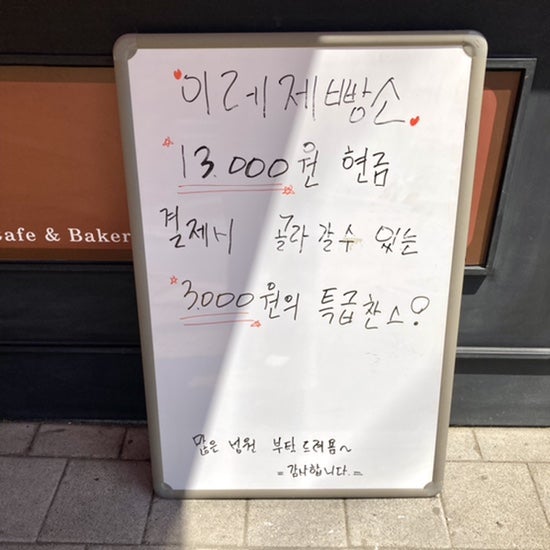 이레제빵소
13.000원 현금
결제시 골라갈수 있는
3.000원의 특급찬스!
많은 성원 부탁드려용~
= 감사합니다. =
Cafe & Baker